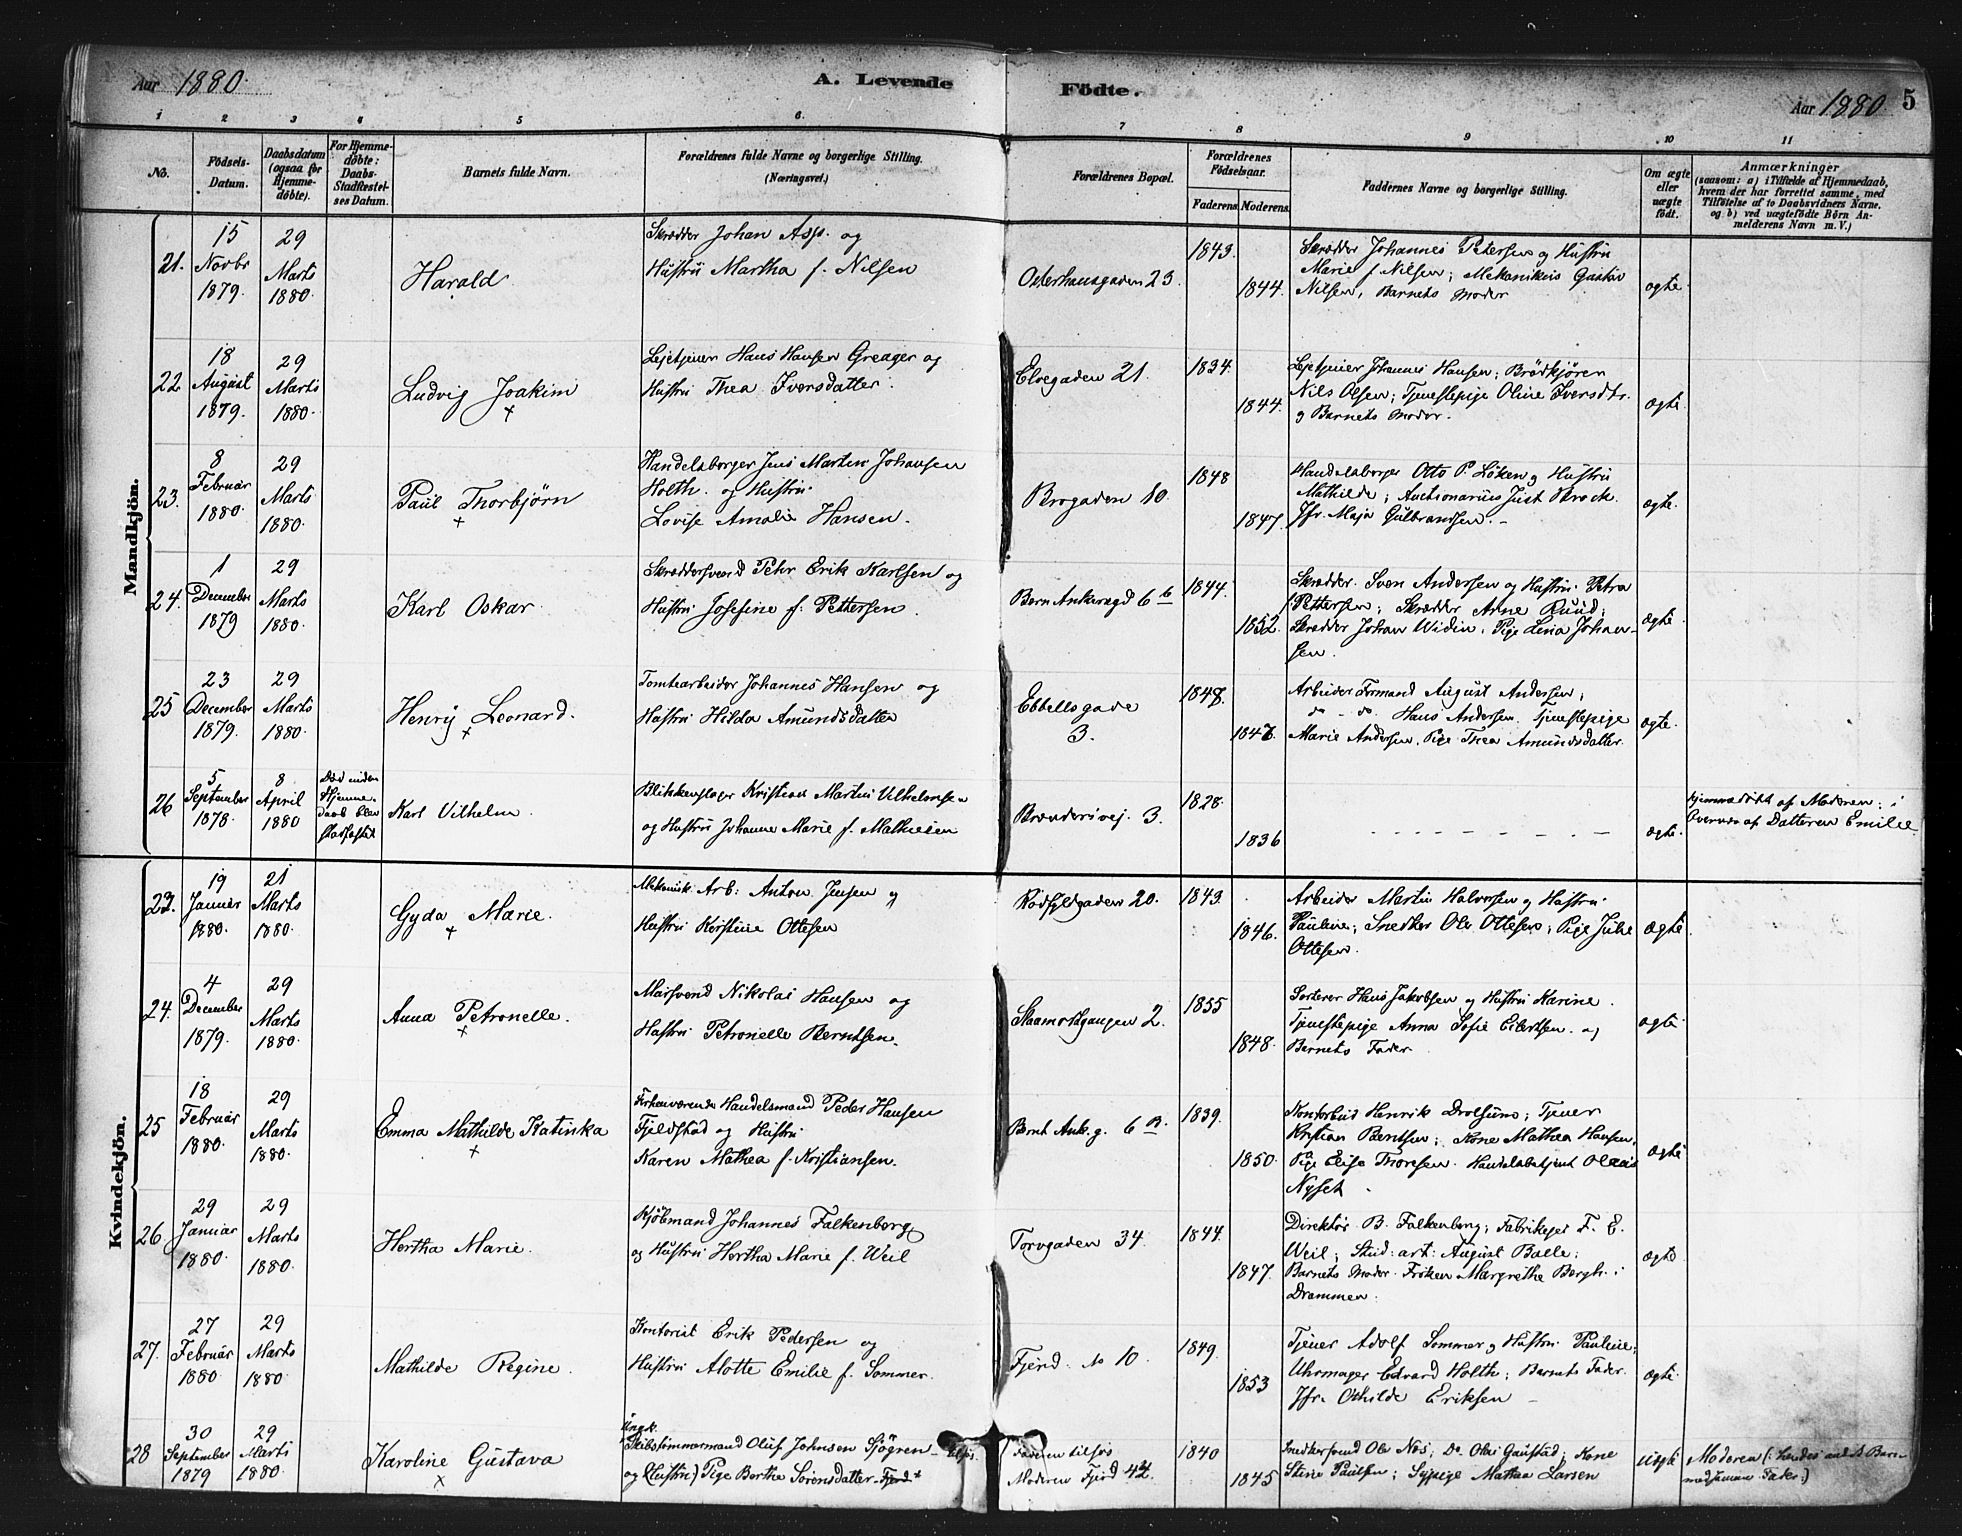 Aar 1880.
A. Levende
Födte.
Aar 1880
5
1 2 3 4 5 6 7 8 9 10 11
No.
Födsels-
Datum.
Daabsdatum
(ogsaa for
Hjemme-
döbte).
For Hjemme-
döbte:
Daabs-
Stadfæstel-
ses Datum.
Barnets fulde Navn.
Forældrenes fulde Navne og borgerlige Stilling.
(Næringsvei.)
Forældrenes Bopæl.
Forældrenes
Födselsaar.
Faderens. Moderens.
Faddernes Navne og borgerlige Stilling.
Om ægte
eller
uægte
födt.
Anmærkninger
(saasom: a) i Tilfælde af Hjemmedaab,
hvem der har forrettet samme, med
Tilföielse af to Daabsvidners Navne.
og b) ved uægtefödte Börn An-
melderens Navn m. V.)
Mandkjön.
21.
15
Novbr
1879.
29
Marts
1880.
Harald
Skrædder Johan Asp. og
Hustru Martha f. Nilsen
Osterhausgaden 23.
1843.
1844.
Skrædder Johannes Petersen og Hustru
Marie f. Nilsen; Mekanikus Gustav
Nilsen, Barnets Moder
ægte
22
18
August
1879.
29
Marts
1880.
Ludvig Joakim
+
Leietjener Hans Hansen Greager og
Hustru Thea Iversdatter.
Elvegaden 21.
1834.
1844.
Leietjener Johannes Hansen; Brödkjörer
Nils Olsen; Tjenestepige Oline Iversdtr.
og Barnets Moder.
ægte
23.
8
Februar
1880.
29
Marts
1880.
Paul Thorbjörn
+
Handelsborger Jens Martin Johansen
Holth. og Hustru
Lovise Amalie Hansen.
Brogaden 10.
1848
1847.
Handelsborger Otto P. Löken og Hustru
Mathilde; Auctionarius Just Skrock.
Jfr. Maja Gulbrandsen. -
ægte.
24.
1
December
1879
29
Marts
1880.
Karl Oskar
Skræddersvend Pehr Erik Karlsen og
Hustru Josefine f. Pettersen.
Bern Ankersgd 6 b
1844.
1852.
Skrædder. Sven Andersen og Hustru Petra
Pettersen; Skrædder Arne Ruud;
Skrædder Johan Widin. Pige Lena Johan-
sen.
ægte
25
23
December
1879.
29
Marts
1880.
Henrij Leonard.
+
Tomtearbeider Johannes Hansen og
Hustru Hilda Amundsdatter
Ebbellsgade
3.
1848.
1847.
Arbeider Formand August Andersen;
do - do. Hans Andersen. Tjenestepige
Marie Andersen, Pige Thea Amundsdatter.
ægte
26
5
September
1878.
8
April
1880
Död inden
Hjemme-
daab blev
stadfæstet
Karl Vilhelm
Blikkenslager Kristian Martin Vilhelmsen
og Hustru Johanne Marie f. Mathiesen
Brænderivej. 3.
1828.
1836
- - - - - - - -
ægte
hjemmedöbt af Moderen; i
Overvær af Datteren Emilie
Kvindekjön.
23.
19
Januar
1880.
21
Marts
1880.
Gyda Marie.
+
Mekanisk. Arb: Anton Jensen og
Hustru Kirstine Ottesen
Rödfyldgaden 20.
1843.
1846.
Arbeider Martin Halvorsen og Hustru
Pauline; Snedker Ole Ottesen; Pige Julie
Ottesen.
ægte
24.
4
December
1879.
29
Marts
1880.
Anna Petronelle.
+
Mursvend Nikolai Hansen og
Hustru Petronelle Berntsen.
Skamodtgangen 2.
1855
1848.
Sorterer Hans Jakobsen og Hustru Karine.
Tjenestepige Anna Sofie Eilertsen. og
Barnets Fader
ægte
25
18
Februar
1880.
29
Marts
1880.
Emma Mathilde Katinka
+
Forhenværende Handelsmand Peder Hansen
Fjeldstad og Hustru
Karen Mathea f. Kristiansen.
Bernt Ank.g. 6 B.
1839.
1850.
Kontorbud Henrik Drolsum; Tjener
Kristian Berntsen; Kone Mathea Hansen.
Pige Elise Thoresen. Handelsbetjent Olaus
Nyset
ægte
26.
29
Januar
1880.
29
Marts
1880.
Hertha Marie.
Kjöbmand Johannes Falkenberg
og Hustru Hertha Marie f. Weil
Torvgaden 34.
1844.
1847.
Direktör B. Falkenberg; Fabrikeier F. E.
Weil; Stud: art: August Balle;
Barnets Moder. Fröken Margrethe Borgh. i
Drammen.
ægte
27.
27
Februar
1880.
29
Marts
1880.
Mathilde Regine.
Kontorist Erik Pedersen og
Hustru Alotte Emilie f. Sommer.
Fjerd. No 10.
1849.
1853
Tjener Adolf Sommer og Hustru Pauline;
Uhrmager Edvard Holth; Barnets Fader.
Jfr. Othilde Eriksen -
ægte
28
30
September
1879
29
Marts
1880.
Karoline Gustava
+
Ungk.
Skibstömmermand Oluf Johnsen Sjögren tilsjös.
og (Hustru) Pige Berthe Sörensdatter Fjerd
Faderen tilsjös
Moderen Fjerd 42.
1840
1845
Snedkersvend Ole Næs; Do Olai Gaustad; Kone
Stine Paulsen; Sypige Mathea Larsen
uægte
Moderen (: hendes andet Barn
med samme Fader:)